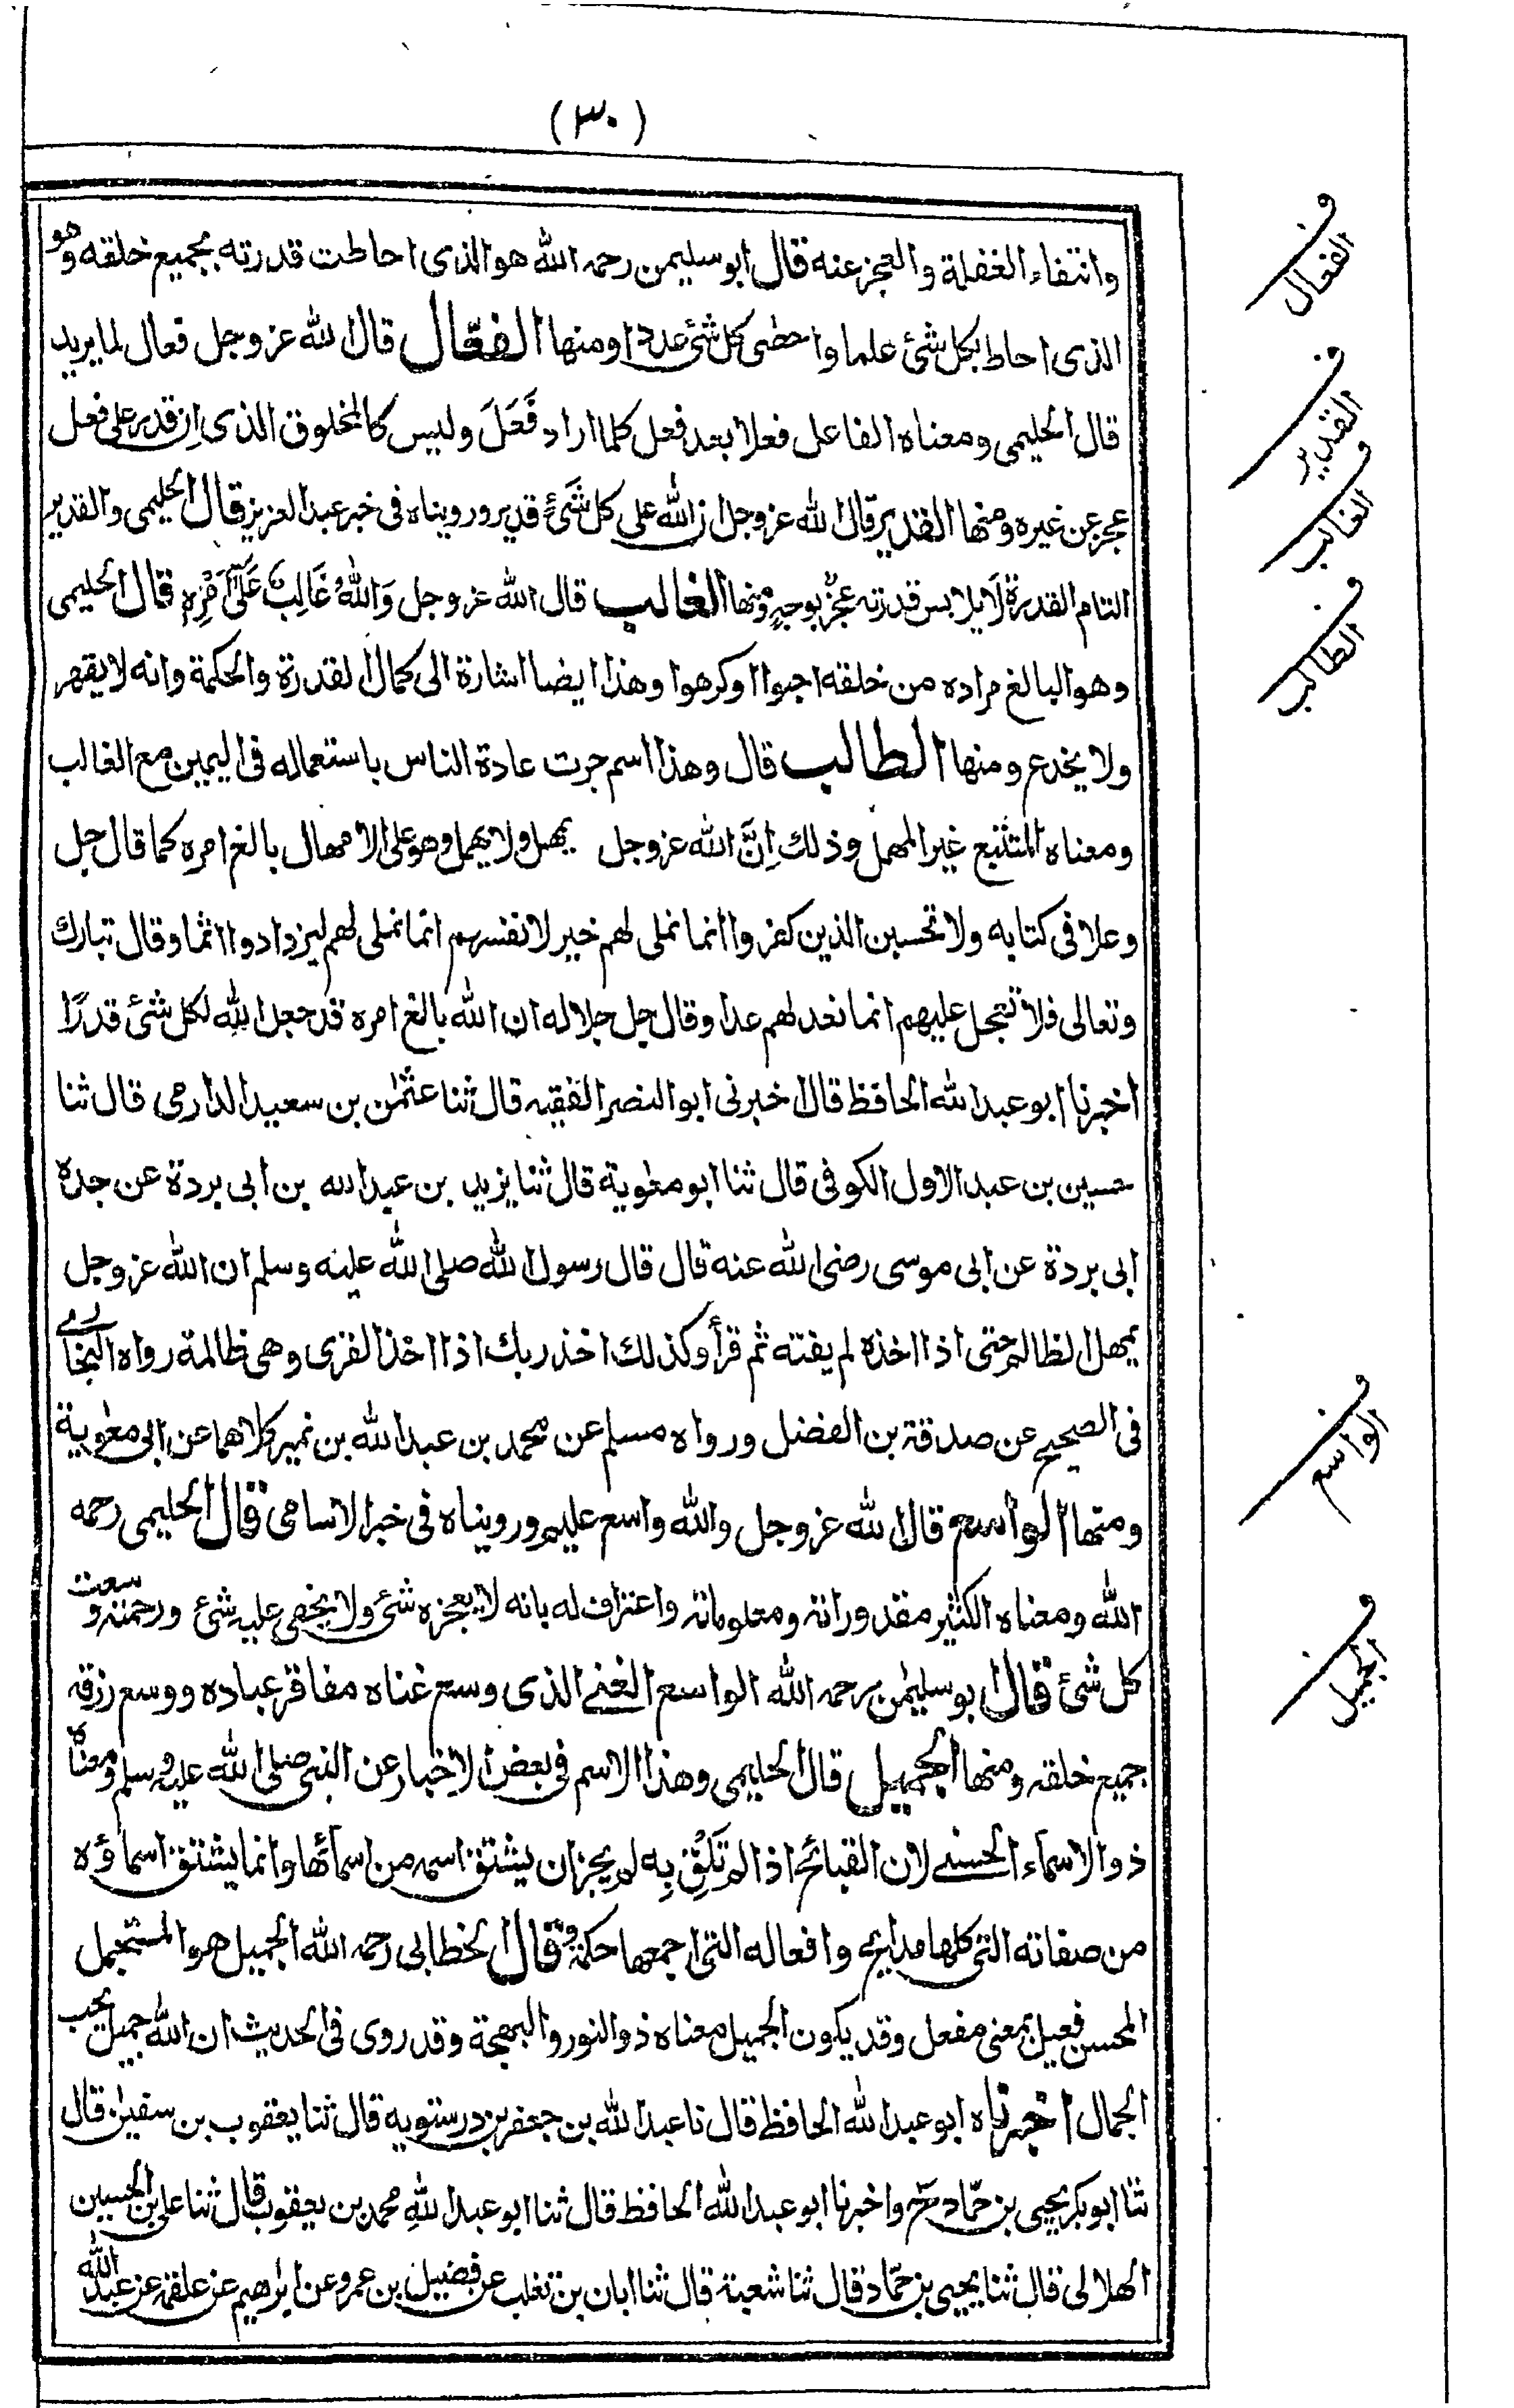 (٣٠)
وانتفاء الغفلة والعجز عنه قال ابو سليمن رحمه الله هو الذى احاطت قدرته بجميع خلقه وهو
الذى احاط بكل شئ علما واحصى كل شئ عددا ومنها الفعّال قال الله عز وجل فعال لما يريد
قال الحليمى ومعناه الفاعل فعلا بعد فعل كلما اراد فَعَلَ وليس كالمخلوق الذى ان قدر على فعل
عجز عن غيره ومنها القدير قال الله عز وجل ان الله على كل شَئٍ قدير ورويناه فى خبر عبد العزيز قال الحليمى والقدير
التام القدرة لَا يلابس قدرته عجزٌ بوجهٍ ومنها الغالب قال الله عز وجل وَاللهُ غَالِبٌ عَلَىٓ اَمْرِهٖ قال الحليمى
وهو البالغ مراده من خلقه احبوا او كرهوا وهذا ايضا اشارة الى كمال القدرة والحكمة وانه لا يقهر
ولا يخدع ومنها الطالب قال وهذا اسم جرت عادة الناس باستعماله فى اليمين مع الغالب
ومعناه المتتبع غير المهمل وذلك اِنَّ الله عز وجل يمهل ولا يهمل وهو على الامهال بالغ امره كما قال جل
وعلا فى كتابه ولا تحسبن الذين كفروا انما نملى لهم خير لانفسهم انما نملى لهم ليزدادوا اثما وقال تبارك
وتعالى فلا تعجل عليهم انما نعد لهم عدا وقال جل جلاله ان الله بالغ امره قد جعل اللهِ لكل شئ قدرًا
اخبرنا ابو عبد الله الحافظ قال اخبرنى ابو النضر الفقيه قال ثنا عثمٰن بن سعيد الدارمى قال ثنا
حسين بن عبد الاول الكوفى قال ثنا ابو معٰوية قال ثنا يزيد بن عبد الله بن ابى بردة عن جده
ابى بردة عن ابى موسى رضى الله عنه قال قال رسول الله صلى الله عليه وسلم ان الله عز وجل
يمهل الظالم حتى اذا اخذه لم يفته ثم قرأ وكذلك اخذ ربك اذا اخذ القرى وهى ظالمة رواه البخارے
فى الصحيح عن صدقة بن الفضل ورواه مسلم عن محمد بن عبد الله بن نمير كلاهما عن ابى معٰوية
ومنها الواسع قال الله عز وجل والله واسع عليم ورويناه فى خبر الاسامى قال الحليمى رحمه
الله ومعناه الكثير مقدوراته ومعلوماته واعتراف له بانه لا يعجزه شئ ولا يخفى عليه شئ ورحمته وسعت
كل شئ قال ابو سليمٰن رحمه الله الواسع الغنے الذى وسع غناه مفاقر عباده ووسع رزقه
جميع خلقه ومنها الجميل قال الحليمى وهذا الاسم فى بعض الاخبار عن النبى صلى الله عليه وسلم ومعناه
ذو الاسماء الحسنے لان القبائح اذا لم تَلِقْ بِه لم يجز ان يشتق اسمه من اسمائها وانما يشتق اسماؤه
من صفاته التى كلها مدائح وافعاله التى اجمعها حكمة وقال الخطابى رحمه الله الجميل هو المستجمل
المحسن فعيل بمعنى مفعل وقد يكون الجميل معناه ذو النور والبهجة وقد روى فى الحديث ان الله جميل يحب
الجمال اخبرناه ابو عبد الله الحافظ قال نا عبد الله بن جعفر بن درستويه قال ثنا يعقوب بن سفيٰن قال
ثنا ابو بكر يحيى بن حمّاد ح واخبرنا ابو عبد الله الحافظ قال ثنا ابو عبد اللهِ محمد بن يعقوب قال ثنا على بن الحسين
الهلالى قال ثنا يحيى بن حمّاد قال ثنا شعبة قال ثنا ابان بن تغلب عن فضيل بن عمرو عن ابرٰهيم عن علقمة عن عبد الله
ف الفعال
ف القدير
ف الغالب
ف الطالب
ف الواسع
ف الجميل